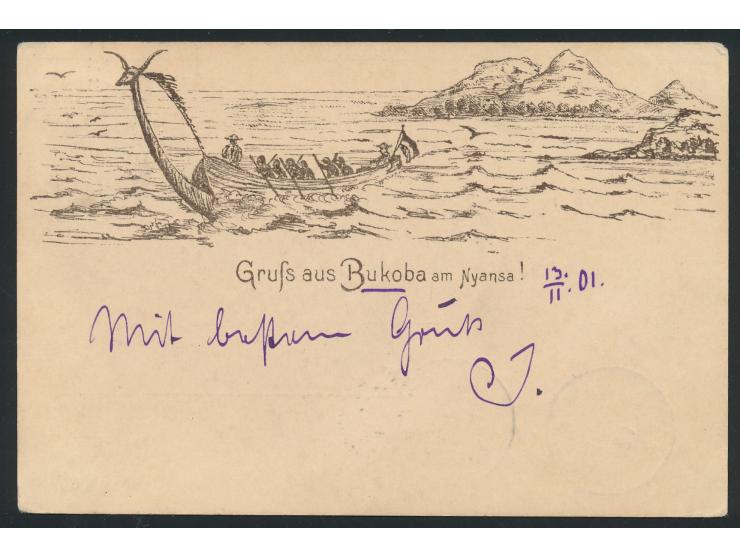 Gruſs aus Bukoba am Nyansa! 13./11. 01.
Mit bestem Gruß
J.